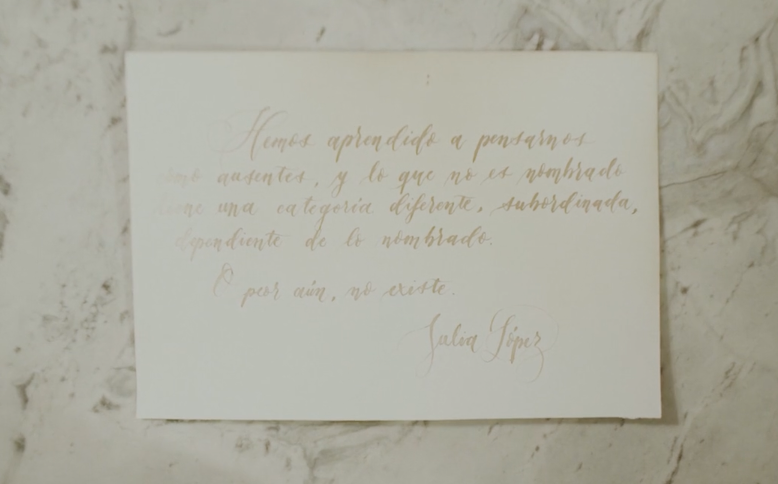 Hemos aprendido a pensarnos
como ausentes, y lo que no es nombrado
tiene una categoría diferente, subordinada,
dependiente de lo nombrado.
O peor aún, no existe.
Julia López